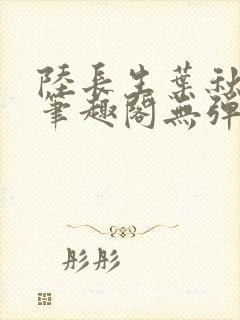 陸長生葉秋
筆趣閣無彈
彤彤